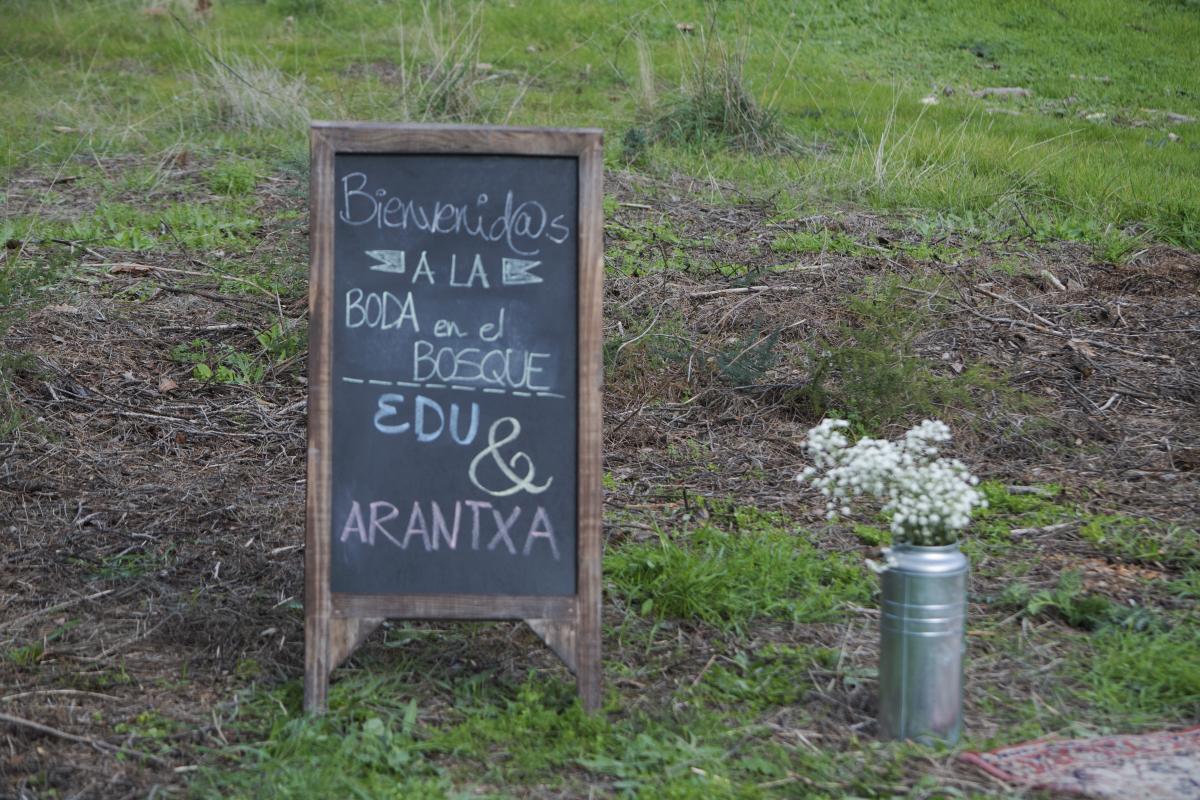 Bienvenid@s
A LA
BODA en el
BOSQUE
EDU
&
ARANTXA